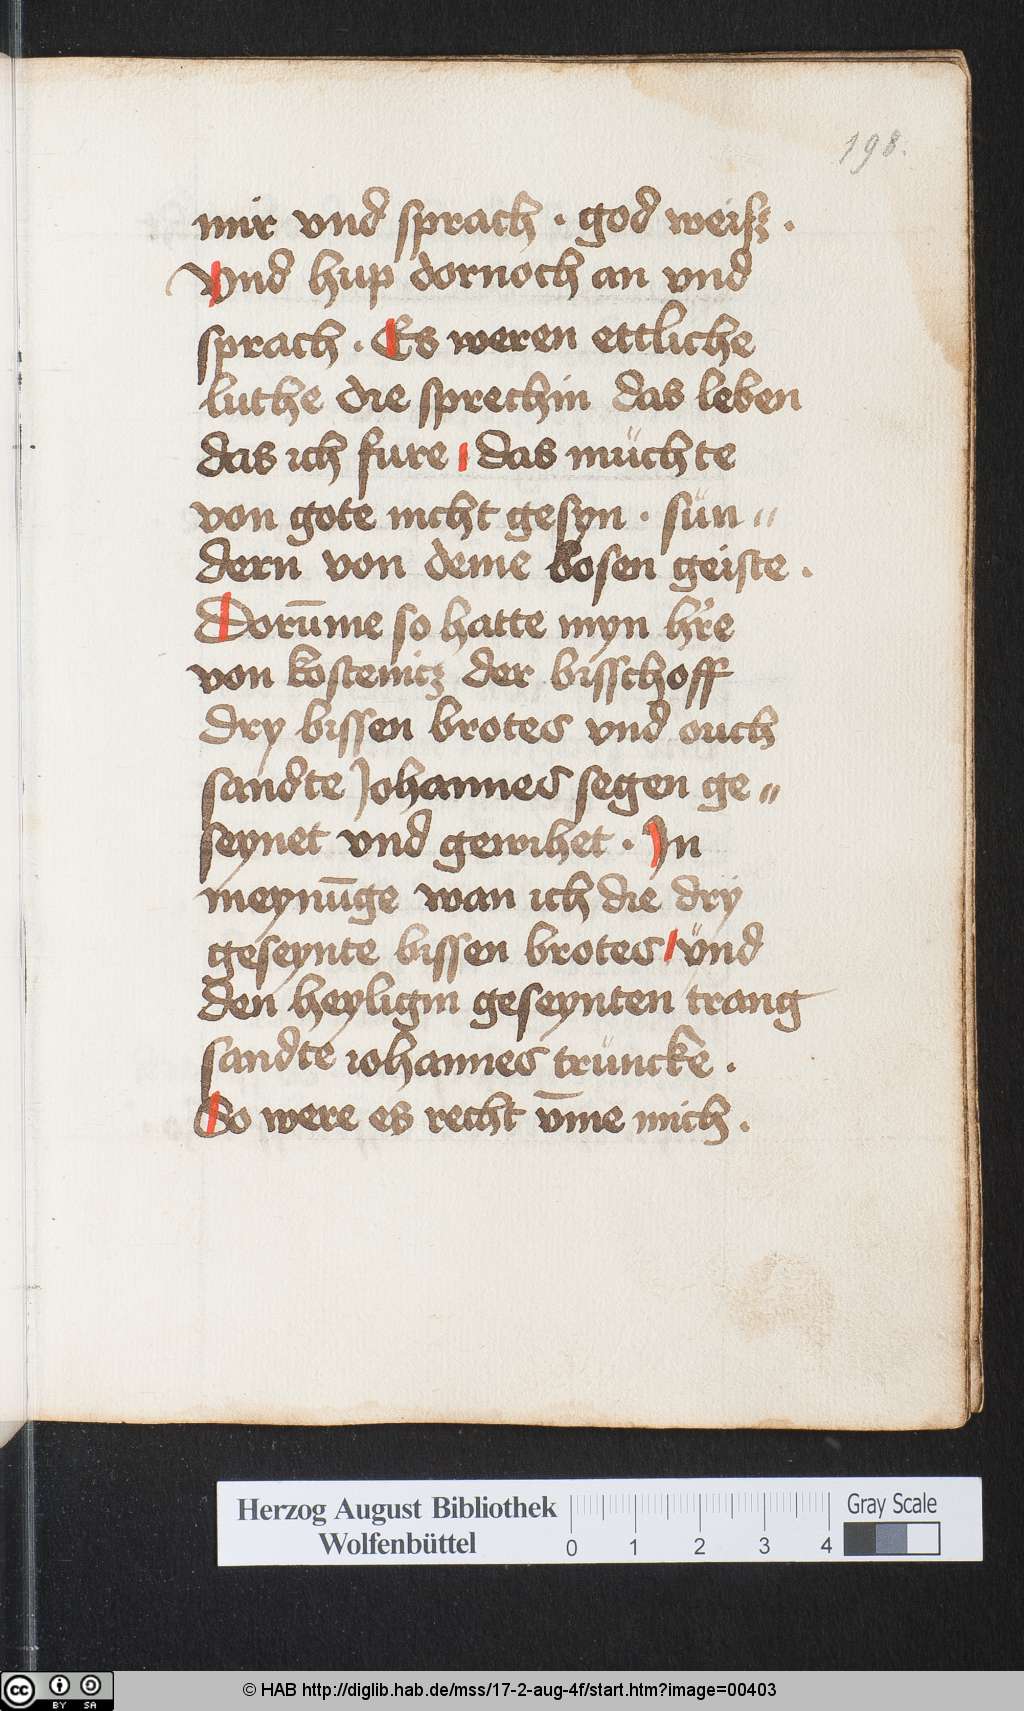 198.
mir vnd sprach · god weisz ·
Vnd hup dornoch an vnd
sprach · Es weren ettliche
luthe die sprechin das leben
das ich fure / das müchte
von gote nicht gesyn · sün〃
dern von deme bosen geiste ·
Dorūme so hatte myn h're
von kostenicz der bisschoff
dry bissen brotes vnd ouch
sandte Johannes segen ge〃
seynet vnd gewihet · In
meynūge wan ich die drÿ
geseynte bissen brotes / vnd
den heyligin geseynten trang
sandte iohannes trüncke ·
So were es recht v̄me mich ·
Herzog August Bibliothek
Wolfenbüttel
0 1 2 3 4
Gray Scale
cc BY SA
© HAB http://diglib.hab.de/mss/17-2-aug-4f/start.htm?image=00403